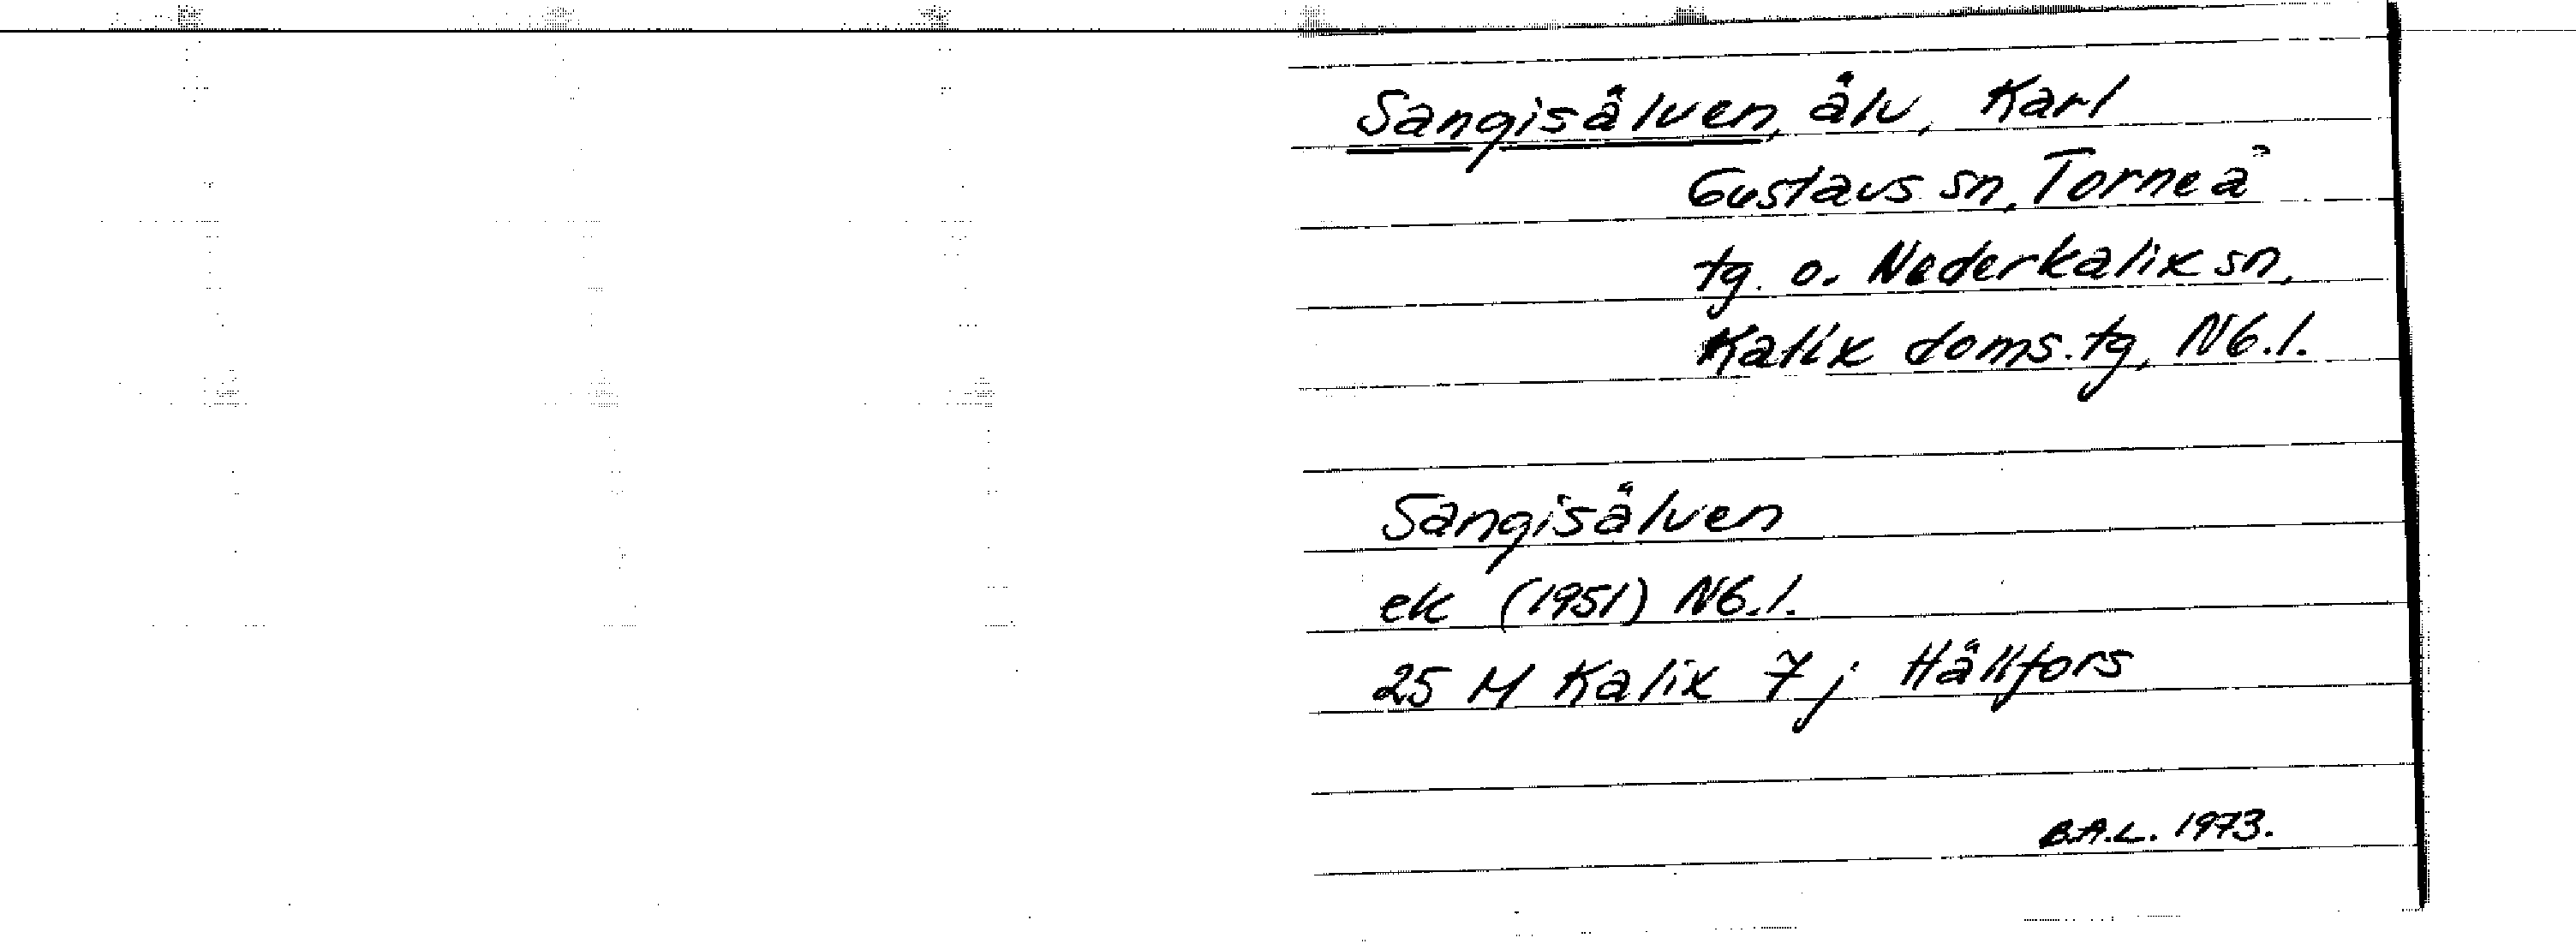 Sangisälven, älv, Karl
Gustavs sn, Torneå
tg. o. Nederkalix sn,
Kalix doms. tg, Nb.l.
Sangisälven
ek (1951) Nb.l.
25 M Kalix 7 j Hällfors
B.A.L. 1973.